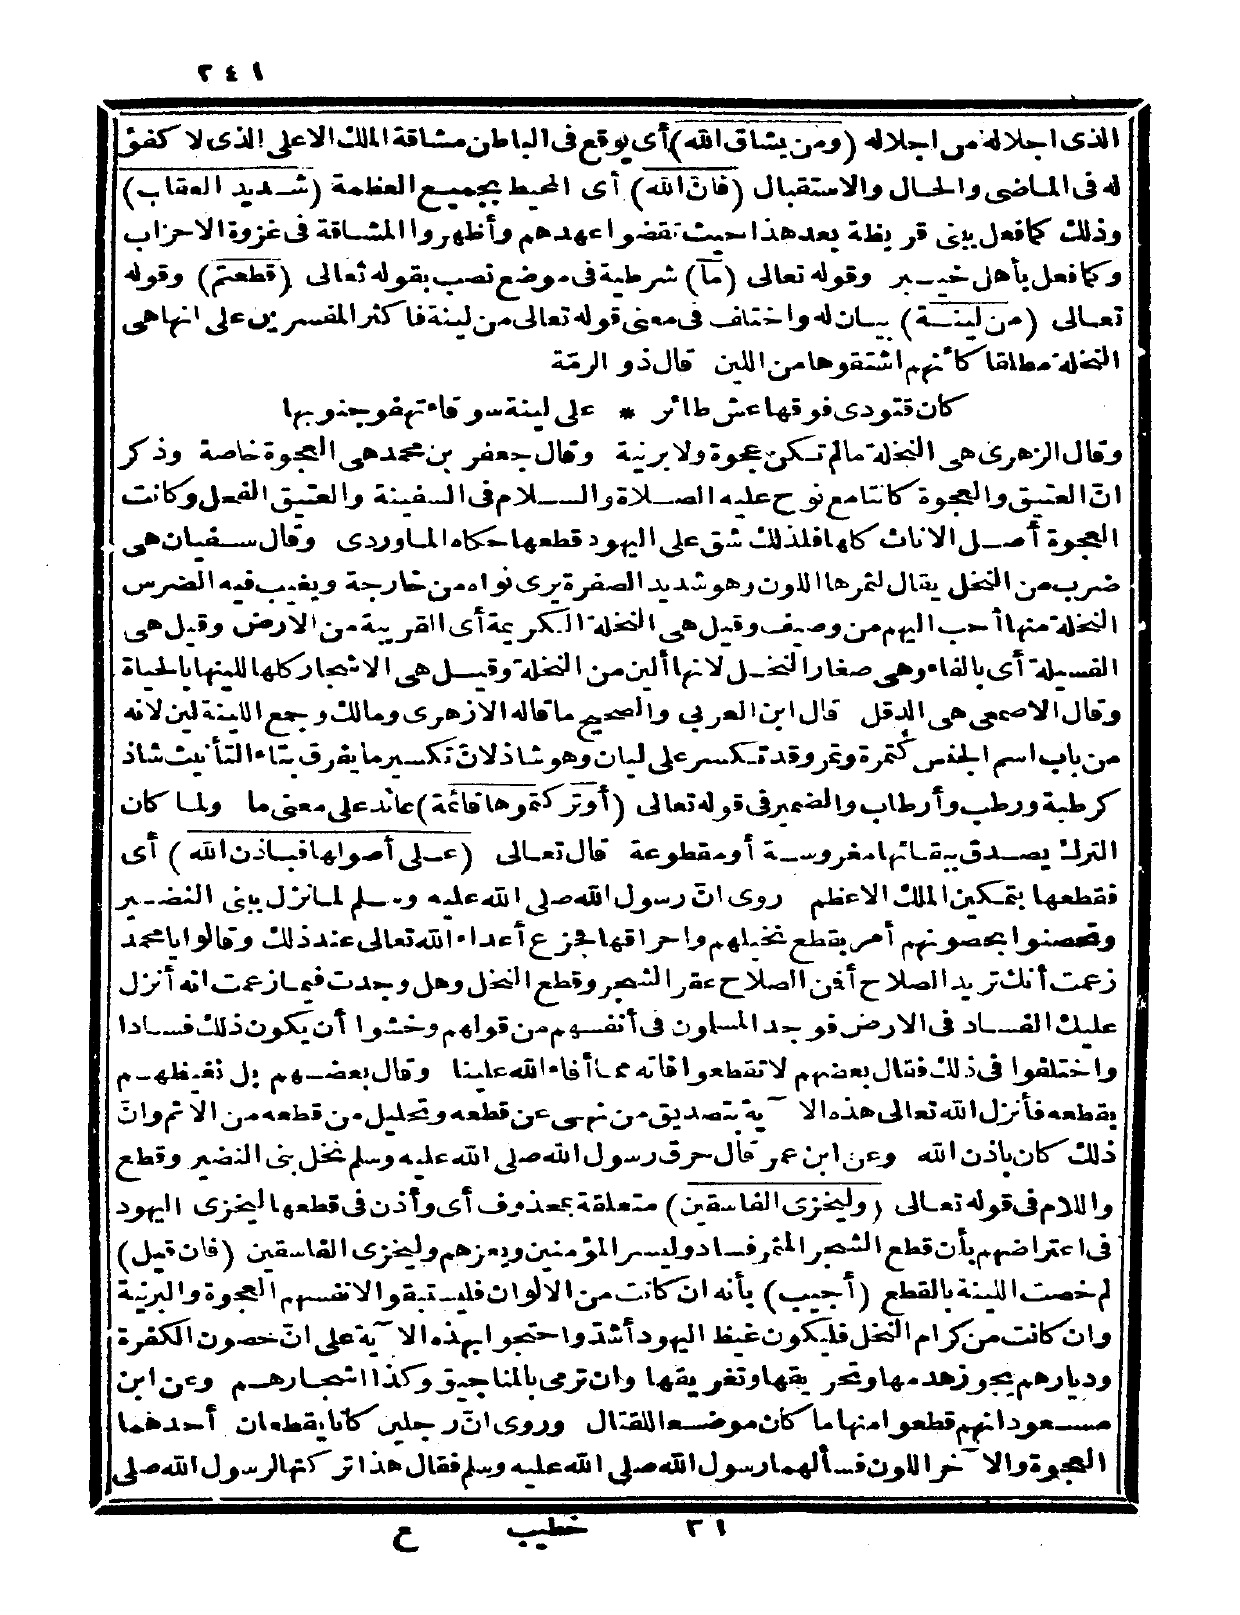 ٢٤١
الذى اجلاله من اجلاله (ومن يشاق الله) أى يوقع فى الباطن مشاقة الملك الاعلى الذى لا كفؤ
له فى الماضى والحال والاستقبال (فان الله) أى المحيط بجميع العظمة (شديد العقاب)
وذلك كما فعل ببنى قريظة بعد هذا حيث نقضوا عهدهم وأظهروا المشاقة فى غزوة الاحزاب
وكما فعل بأهل خيبر وقوله تعالى (ما) شرطية فى موضع نصب بقوله تعالى (قطعتم) وقوله
تعالى (من لينة) بيان له واختلف فى معنى قوله تعالى من لينة فأكثر المفسرين على انها هى
النخلة مطلقا كأنهم اشتقوها من اللين قال ذو الرمّة
كان قتودى فوقها عش طائر * على لينة سوقاء تهفو جنوبها
وقال الزهرى هى النخلة مالم تكن عجوة ولا برنية وقال جعفر بن محمد هى العجوة خاصة وذكر
انّ العتيق والعجوة كانتا مع نوح عليه الصلاة والسلام فى السفينة والعتيق الفحل وكانت
العجوة أصل الاناث كلها فلذلك شق على اليهود قطعها حكاه الماوردى وقال سفيان هى
ضرب من النخل يقال لثمرها اللون وهو شديد الصفرة يرى نواه من خارجة ويغيب فيه الضرس
النخلة منها أحب اليهم من وصيف وقيل هى النخلة الكريمة أى القريبة من الارض وقيل هى
الفسيلة أى بالفاء وهى صغار النخل لانها ألين من النخلة وقيل هى الاشجار كلها للينها بالحياة
وقال الاصمعى هى الدقل قال ابن العربى والصحيح ما قاله الازهرى ومالك وجمع اللينة لين لانه
من باب اسم الجنس كتمرة وتمر وقد تكسر على ليان وهو شاذ لانّ تكسير ما يفرق بتاء التأنيث شاذ
كرطبة ورطب وأرطاب والضمير فى قوله تعالى (أو تركتموها قائمة) عائد على معنى ما ولما كان
الترك يصدق ببقائها مغروسة أو مقطوعة قال تعالى (على أصولها فباذن الله) أى
فقطعها بتمكين الملك الاعظم روى انّ رسول الله صلى الله عليه وسلم لما نزل ببنى النضير
وتحصنوا بحصونهم أمر بقطع نخيلهم واحراقها فجزع أعداء الله تعالى عند ذلك وقالوا يا محمد
زعمت أنك تريد الصلاح أفمن الصلاح عقر الشجر وقطع النخل وهل وجدت فيما زعمت انه أنزل
عليك الفساد فى الارض فوجد المسلمون فى أنفسهم من قولهم وخشوا أن يكون ذلك فسادا
واختلفوا فى ذلك فقال بعضهم لا تقطعوا فانه مما أفاء الله علينا وقال بعضهم بل نغيظهم
بقطعه فأنزل الله تعالى هذه الآية بتصديق من نهى عن قطعه وتحليل من قطعه من الاثم وانّ
ذلك كان باذن الله وعن ابن عمر قال حرق رسول الله صلى الله عليه وسلم نخل بنى النضير وقطع
واللام فى قوله تعالى (وليخزى الفاسقين) متعلقة بمحذوف أى وأذن فى قطعها ليخزى اليهود
فى اعتراضهم بأن قطع الشجر المثمر فساد وليسر المؤمنين ويعزهم وليخزى الفاسقين (فان قيل)
لم خصت اللينة بالقطع (أجيب) بأنه ان كانت من الالوان فليستبقوا لانفسهم العجوة والبرنية
وان كانت من كرام النخل فليكون غيظ اليهود أشدّ واحتجوا بهذه الآية على انّ حصون الكفرة
وديارهم يجوز هدمها وتحريقها وتغريقها وان ترمى بالمناجيق وكذا اشجارهم وعن ابن
مسعود انهم قطعوا منها ما كان موضعا للقتال وروى انّ رجلين كانا يقطعان أحدهما
العجوة والآخر اللون فسألهما رسول الله صلى الله عليه وسلم فقال هذا تركتها لرسول الله صلى
٣١ خطيب ع